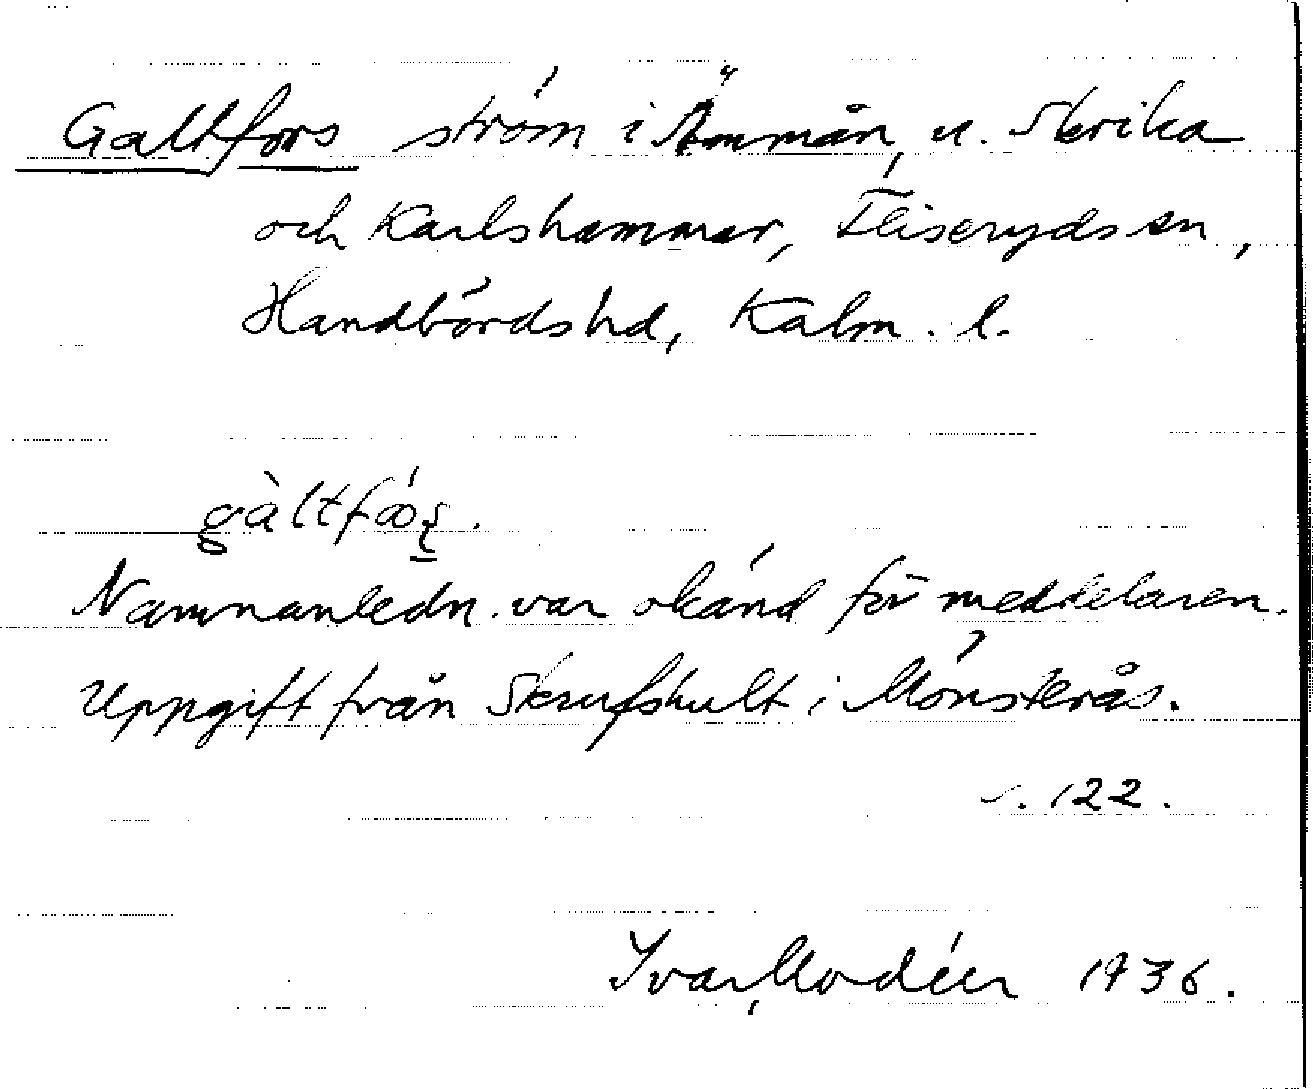 Galtfors ström i Ämmån, n. Skrika
och Karlshammar, Fliseryds sn,
Handbörds hd, Kalm. l.
gàltfǿş.
Namnanledn. var okänd för meddelaren.
Uppgift från Skrufshult i Mönsterås.
s. 122.
Ivar Modéer 1936.